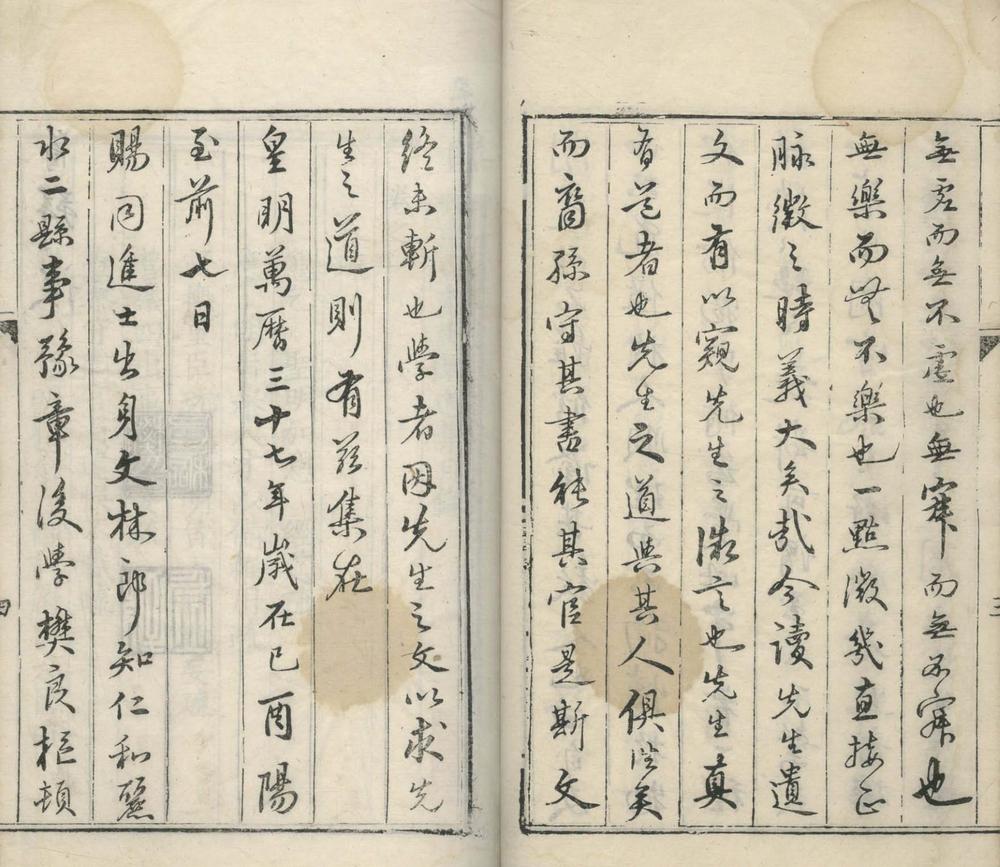 無虛而無不虛也無寂而無不寂也
無樂而無不樂也一點微幾直接正
脉微之時義大矣哉今讀先生遺
文而有以窺先生之微言也先生真
有道者也先生之道與其人俱往矣
而裔孫守其書能其官是斯文
終未斬也學者因先生之文以求先
生之道則有茲集在
皇明萬曆三十七年歲在己酉陽
至前七日
賜同進士出身文林郎知仁和麗
水二縣事豫章後學樊良樞頓